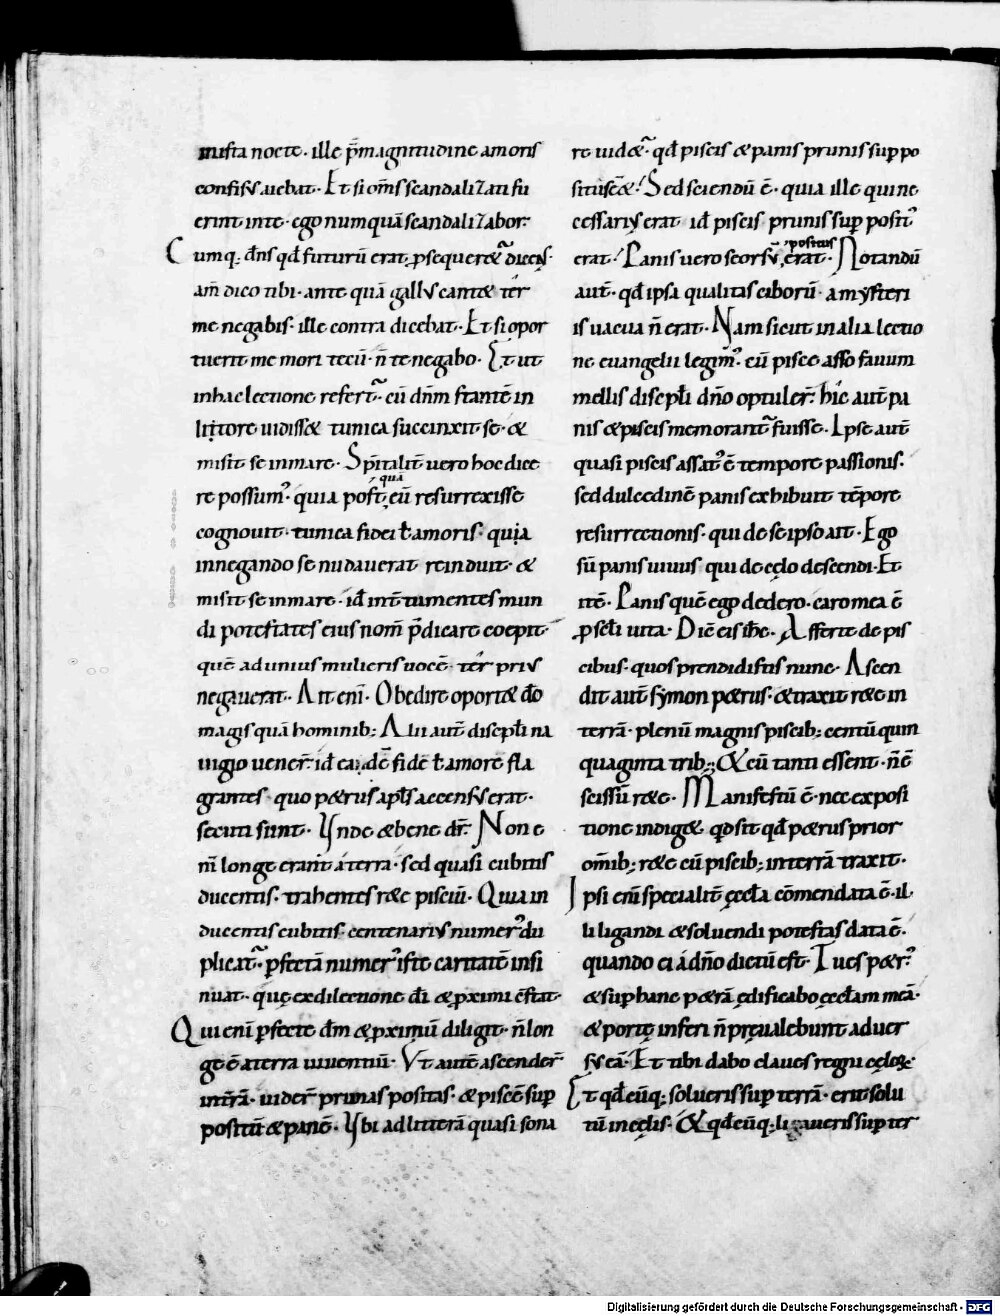 in ista nocte · ille p̄ magnitudine amoris
confisus aiebat · Et si om̄s scandalizati fu
erint in te · ego numquā scandalizabor ·
Cumq; dn̄s qđ futurū erat · ꝑsequeret᷑ dicens ·
am̄ dico tibi · ante quā gallus cantet ter
me negabis · ille contra dicebat · Et si opor
tuerit me mori tecū · ñ te negabo · Et ut
in hac lectione refert᷑ · cū dn̄m stantē in
littore uidisset tunica succinxit se · &
misit se in mare · Sp̄italit̄ uero hoc dice
re possum᷒ · quia post quā eū resurrexisse
cognouit · tunica fidei ł amoris · quia
in negando se nudauerat reinduit · &
misit se in mare · id int̄ tumentes mun
di potestates eius nom̄ p̄dicare coepit ·
quē ad unius mulieris uocē · ter prius
negauerat · Ait enī · Obedire oportet dō
magis quā hominib; Alii aut̄ discipłi na
uigio uener̄ · id eadē fide ł amore fla
grantes · quo petrus apłs accensus erat ·
secuti sunt · Unde & bene dr̄ · Non e
nī longe erant a terra · sed quasi cubitis
ducentis · trahentes rete pisciū · Quia in
ducentis cubitis centenarius numer᷒ du
plicat᷑ · ꝑfectā numer᷒ iste caritatē insi
nuat · quę ex dilectione dī & ꝓximi c̄stat ·
Qui enī ꝑfecte dm̄ & ꝓximū diligit · ñ lon
ge ē a terra uiuentiū · Ut autē ascender̄
in trā · uider̄ prunas positas · & piscē suꝑ
positū & panē · Ubi ad litterā quasi sona
re uidet᷑ · qđ piscis & panis prunis suppo
situs eēt · Sed sciendū ē · quia ille qui ne
cessarius erat id piscis prunis suꝑ posit᷒
erat · Panis uero seorsū positus erat · Notandū
aut̄ · qđ ipsa qualitas ciborū · a mysteri
is uacua ñ erat · Nam sicut in alia lectio
ne euangelii legim᷒ · cū pisce asso fauum
mellis discipłi dn̄o optuler̄ · hic aut̄ pa
nis & piscis memorant᷑ fuisse · Ipse aut̄
quasi piscis assat᷒ ē tempore passionis ·
sed dulcedinē panis exhibuit tēpore
resurrectionis · qui de se ipso ait · Ego
sū panis uiuus qui de cęlo descendi · Et
itē · Panis quē ego dedero · caro mea ē
ꝓ scłi uita · Dic̄ eis ih̄c · Afferte de pis
cibus · quos prendidistis nunc · Ascen
dit aut̄ symon petrus · & traxit rete in
terrā · plenū magnis piscib; centū quin
quaginta trib; & cū tanti essent · ñ ē
scissū rete · Manifestū ē · nec exposi
tione indiget quod sit qđ petrus prior
om̄ib; rete cū piscib; in terrā traxit ·
Ipsi enī specialit̄ ęccła cōmendata ē · il
li ligandi & soluendi potestas data ē ·
quando ei a dn̄o dictū est · Tu es petr᷒
& suꝑ hanc petrā ędificabo ęccłam meā ·
& portę inferi ñ pręualebunt aduer
sus eā · Et tibi dabo claues regni cęlorum
Et qđcūq; solueris suꝑ terrā · erit solu
tū in cęlis · & qđcūq; ligaueris suꝑ ter
Digitalisierung gefördert durch die Deutsche Forschungsgemeinschaft - DFG